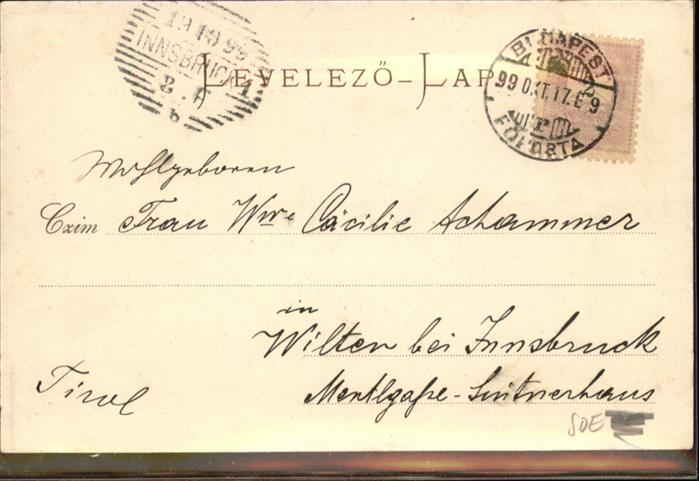 19 10 99
INNSBRUCK 1
8-
b
LEVELEZŐ-LAP
BUDAPEST
99 OKT. 17. E 9
FŐPOSTA
2
Wohlgeboren
Czim Frau Wwe Cäcilie Achammer
in
Wilten bei Innsbruck
Tirol
Mentlgaße-Lintnerhaus
50E